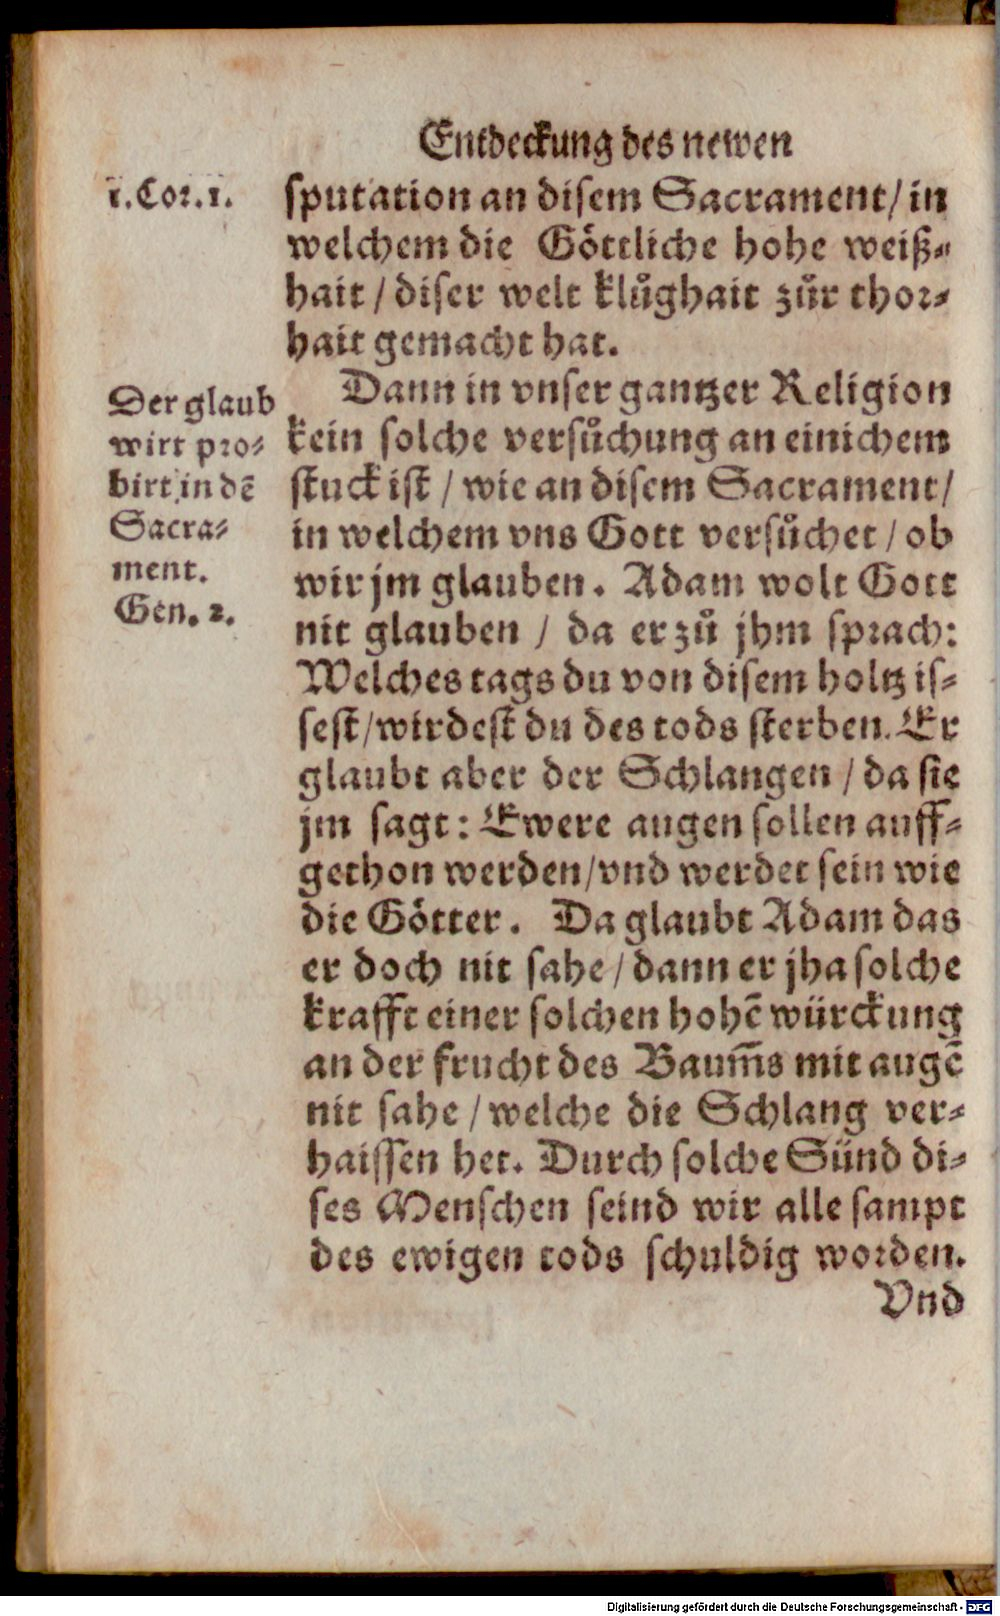 Entdeckung des newen
1. Cor. 1.
sputation an disem Sacrament/ in
welchem die Göttliche hohe weiß-
hait / diser welt klůghait zůr thor-
hait gemacht hat.
Der glaub
wirt pro-
birt in dē
Sacra-
ment.
Gen. 2.
Dann in vnser gantzer Religion
kein solche versůchung an einichem
stuck ist / wie an disem Sacrament/
in welchem vns Gott versůchet / ob
wir jm glauben. Adam wolt Gott
nit glauben / da er zů jhm sprach:
Welches tags du von disem holtz is-
sest/wirdest du des tods sterben. Er
glaubt aber der Schlangen / da sie
jm sagt: Ewere augen sollen auff-
gethon werden/vnd werdet sein wie
die Götter. Da glaubt Adam das
er doch nit sahe/dann er jha solche
krafft einer solchen hohē würckung
an der frucht des Baum̄s mit augē
nit sahe / welche die Schlang ver-
haissen het. Durch solche Sünd di-
ses Menschen seind wir alle sampt
des ewigen tods schuldig worden.
Vnd
Digitalisierung gefördert durch die Deutsche Forschungsgemeinschaft - DFG